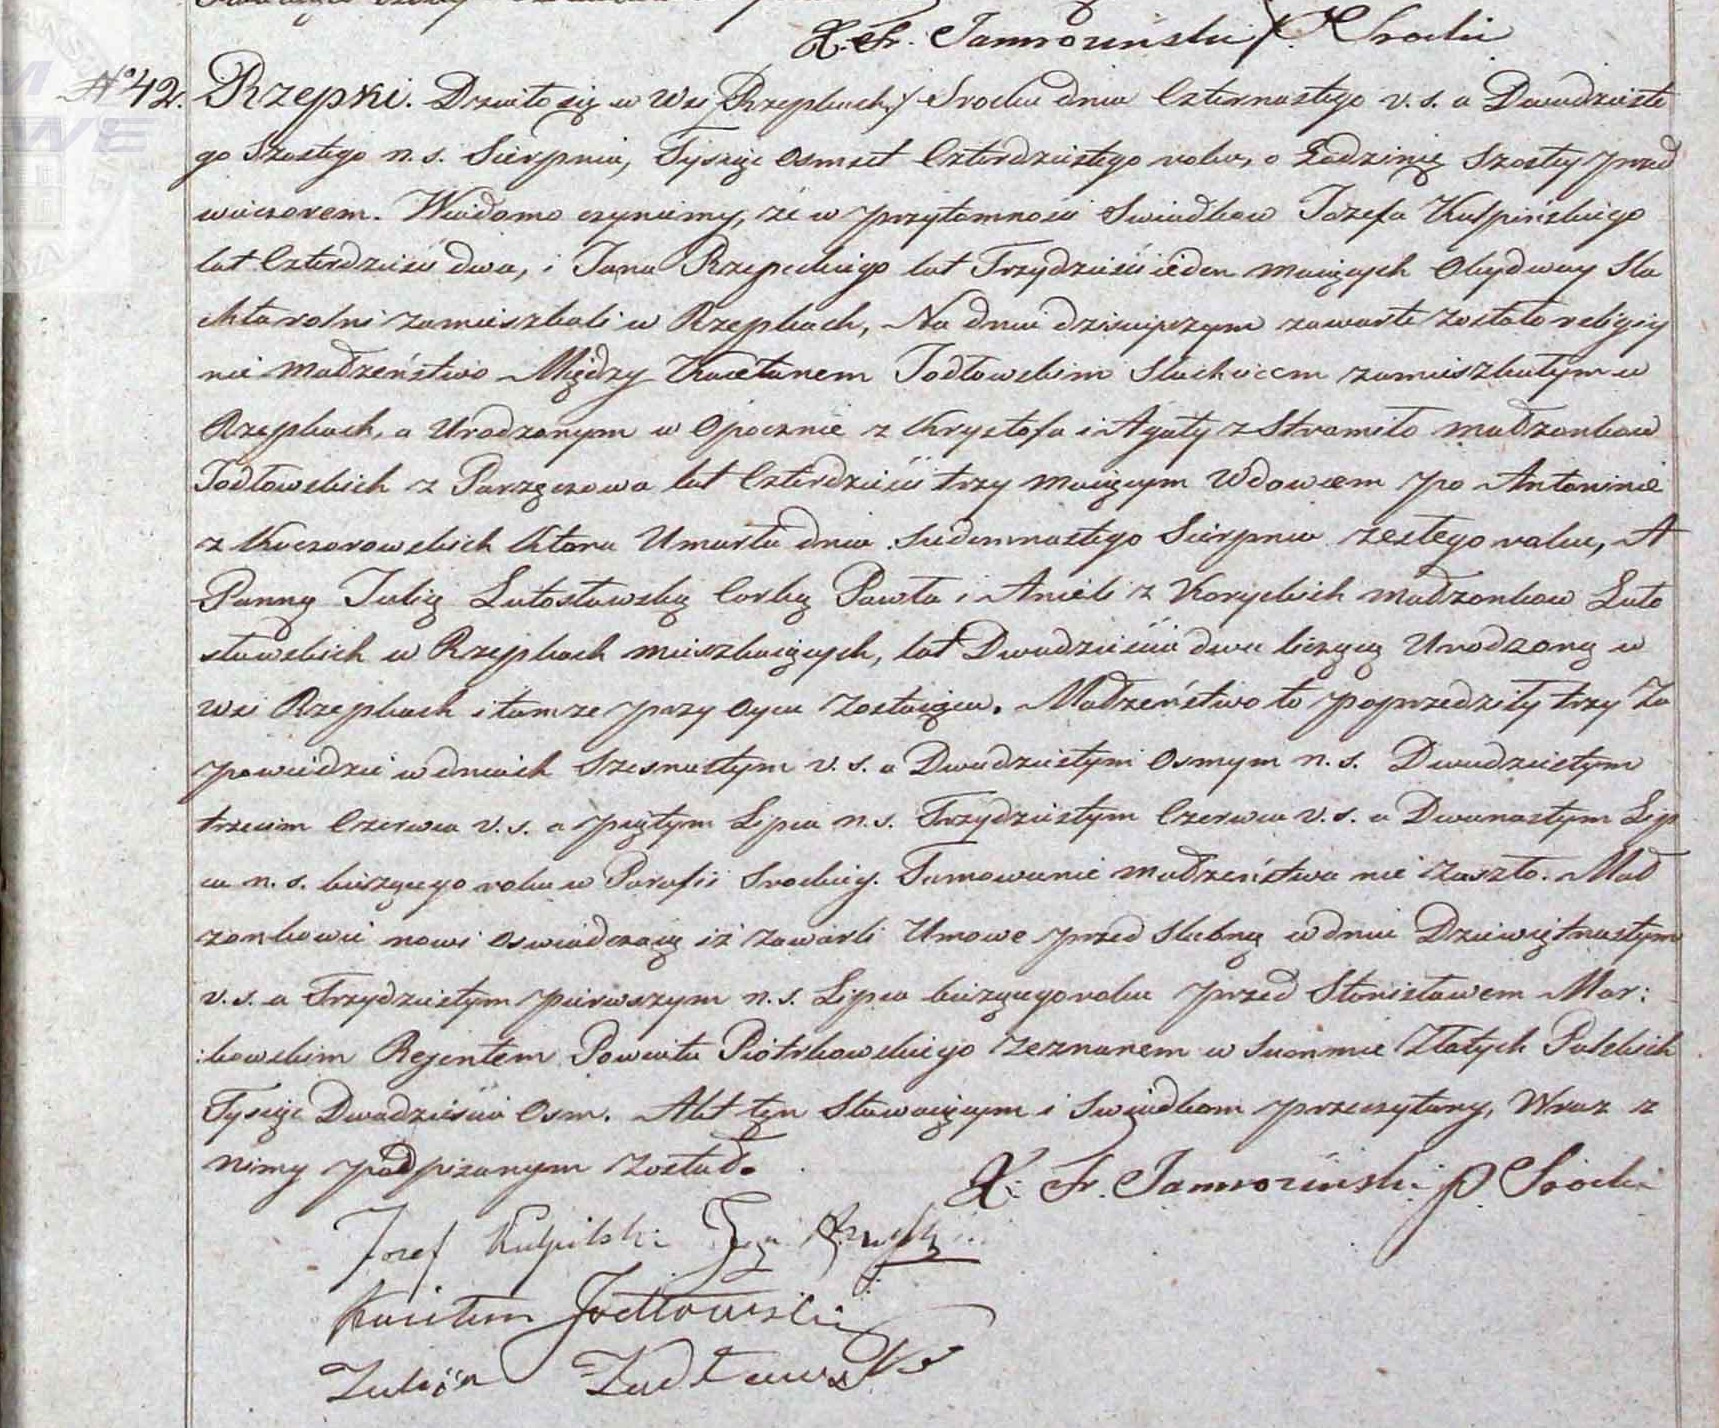 X. Fr. Jamroziński P. Srocki
N° 42. Rzepki. Działo się w Wsi Rzepkach / Srocku dnia Czternastego v. s. a Dwudzieste
go Szostego n. s. Sierpnia, Tysiąc Osmset Czterdziestego roku, o Godzinię Szostey przed
wieczorem. Wiadomo czyniemy, że w przytomności Swiadkow Jozefa Kulpińskiego
lat Czterdzieści dwa, i Jana Rzepeckiego lat Trzydzieści ieden maiących Obydway Sla
chta rolni zamieszkali w Rzepkach, Na dniu dzisieyszym zawarte zostało religiy
nie małżeństwo Między Kaietanem Jodłowskim Slachcicem zamieszkałym w
Rzepkach, a Urodzonym w Opocznie z Krysztofa i Agaty z Stromiło małzonkow
Jodłowskich z Parzęczowa lat Czterdzieści trzy maiącym Wdowcem po Antoninie
z Kaczorowskich Ktora Umarła dnia Siedemnastego Sierpnia zeszłego roku, A
Panną Julią Lutosławską Corką Pawła i Anieli z Koryckich małzonkow Luto
sławskich w Rzepkach mieszkaiących, lat Dwadzieścia dwa licząą Urodzoną w
Wsi Rzepkach i tamze przy Oycu zostaiąca. Małżeństwo to poprzedziły trzy Za
powiedzi w dniach Szesnastym v. s. a Dwudziestym Osmym n. s. Dwudziestym
trzecim Czerwca v. s. a piątym Lipca n. s. Trzydziestym Czerwca v. s. a Dwunastym Lip
ca n. s. bieżącego roku w Parafii Srockiey. Tamowanie małżeństwa nie zaszło. Mał
zonkowie nowi oswiadczaią iż zawarli Umowe przed slubną w dniu Dziewiętnastym
v. s. a Trzydziestym pierwszym n. s. Lipca bieżącego roku przed Stanisławem Mar:
:kowskim Rejentem Powiatu Piotrkowskiego zeznanem w Summie Złotych Polskich
Tysiąc Dwadzieścia Osm. Akt ten Stawaiącym i Swiadkom przeczytany, Wraz z
nimy podpisanym został.
X. Fr. Jamroziński P. Srocki
Jozef Kulpiński Jan
Kaietan Jodłowski